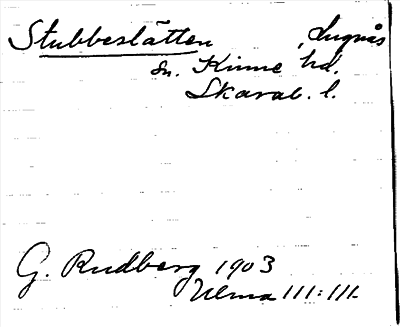 Stubbeslätten, Lugnås
sn. Kinne hd.
Skarab. l.
G. Rudberg 1903
Ulma 111:111.